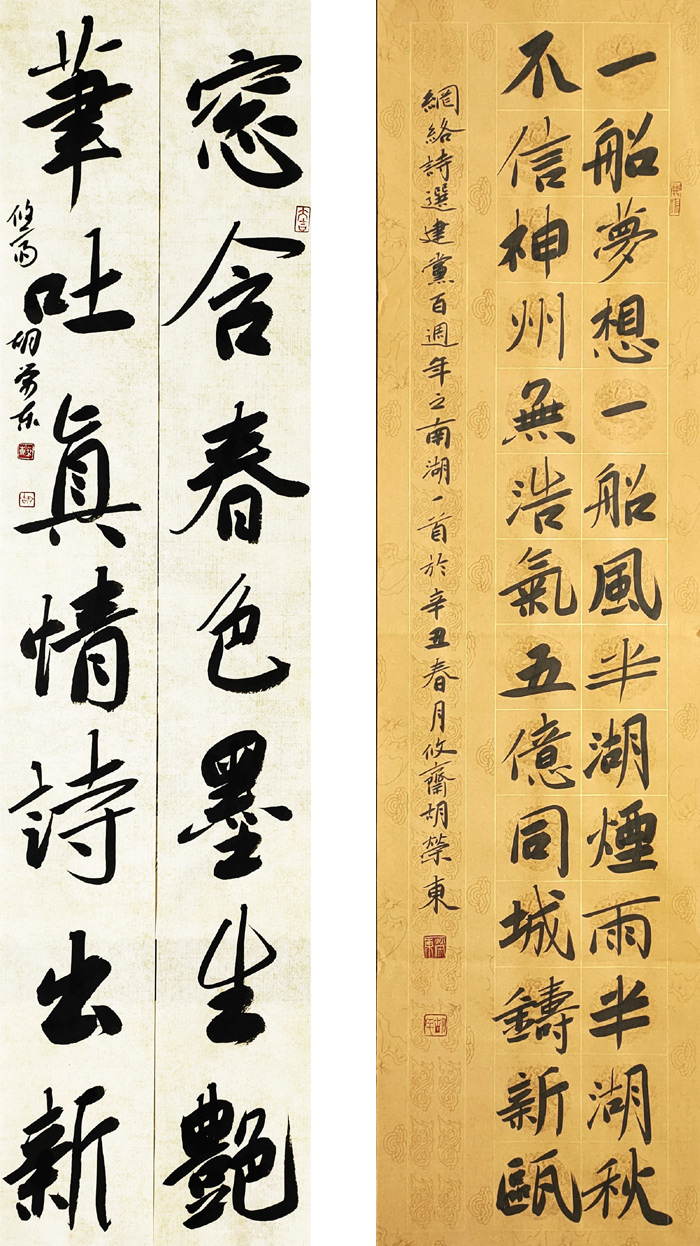 窓含春色墨生艷
筆吐眞情詩出新
攸斋胡荣东
大吉
一船夢想一船風半湖煙雨半湖秋
不信神州無浩氣五億同城鑄新甌
網絡詩選建黨百週年之南湖一首於辛丑春月攸齋胡榮東